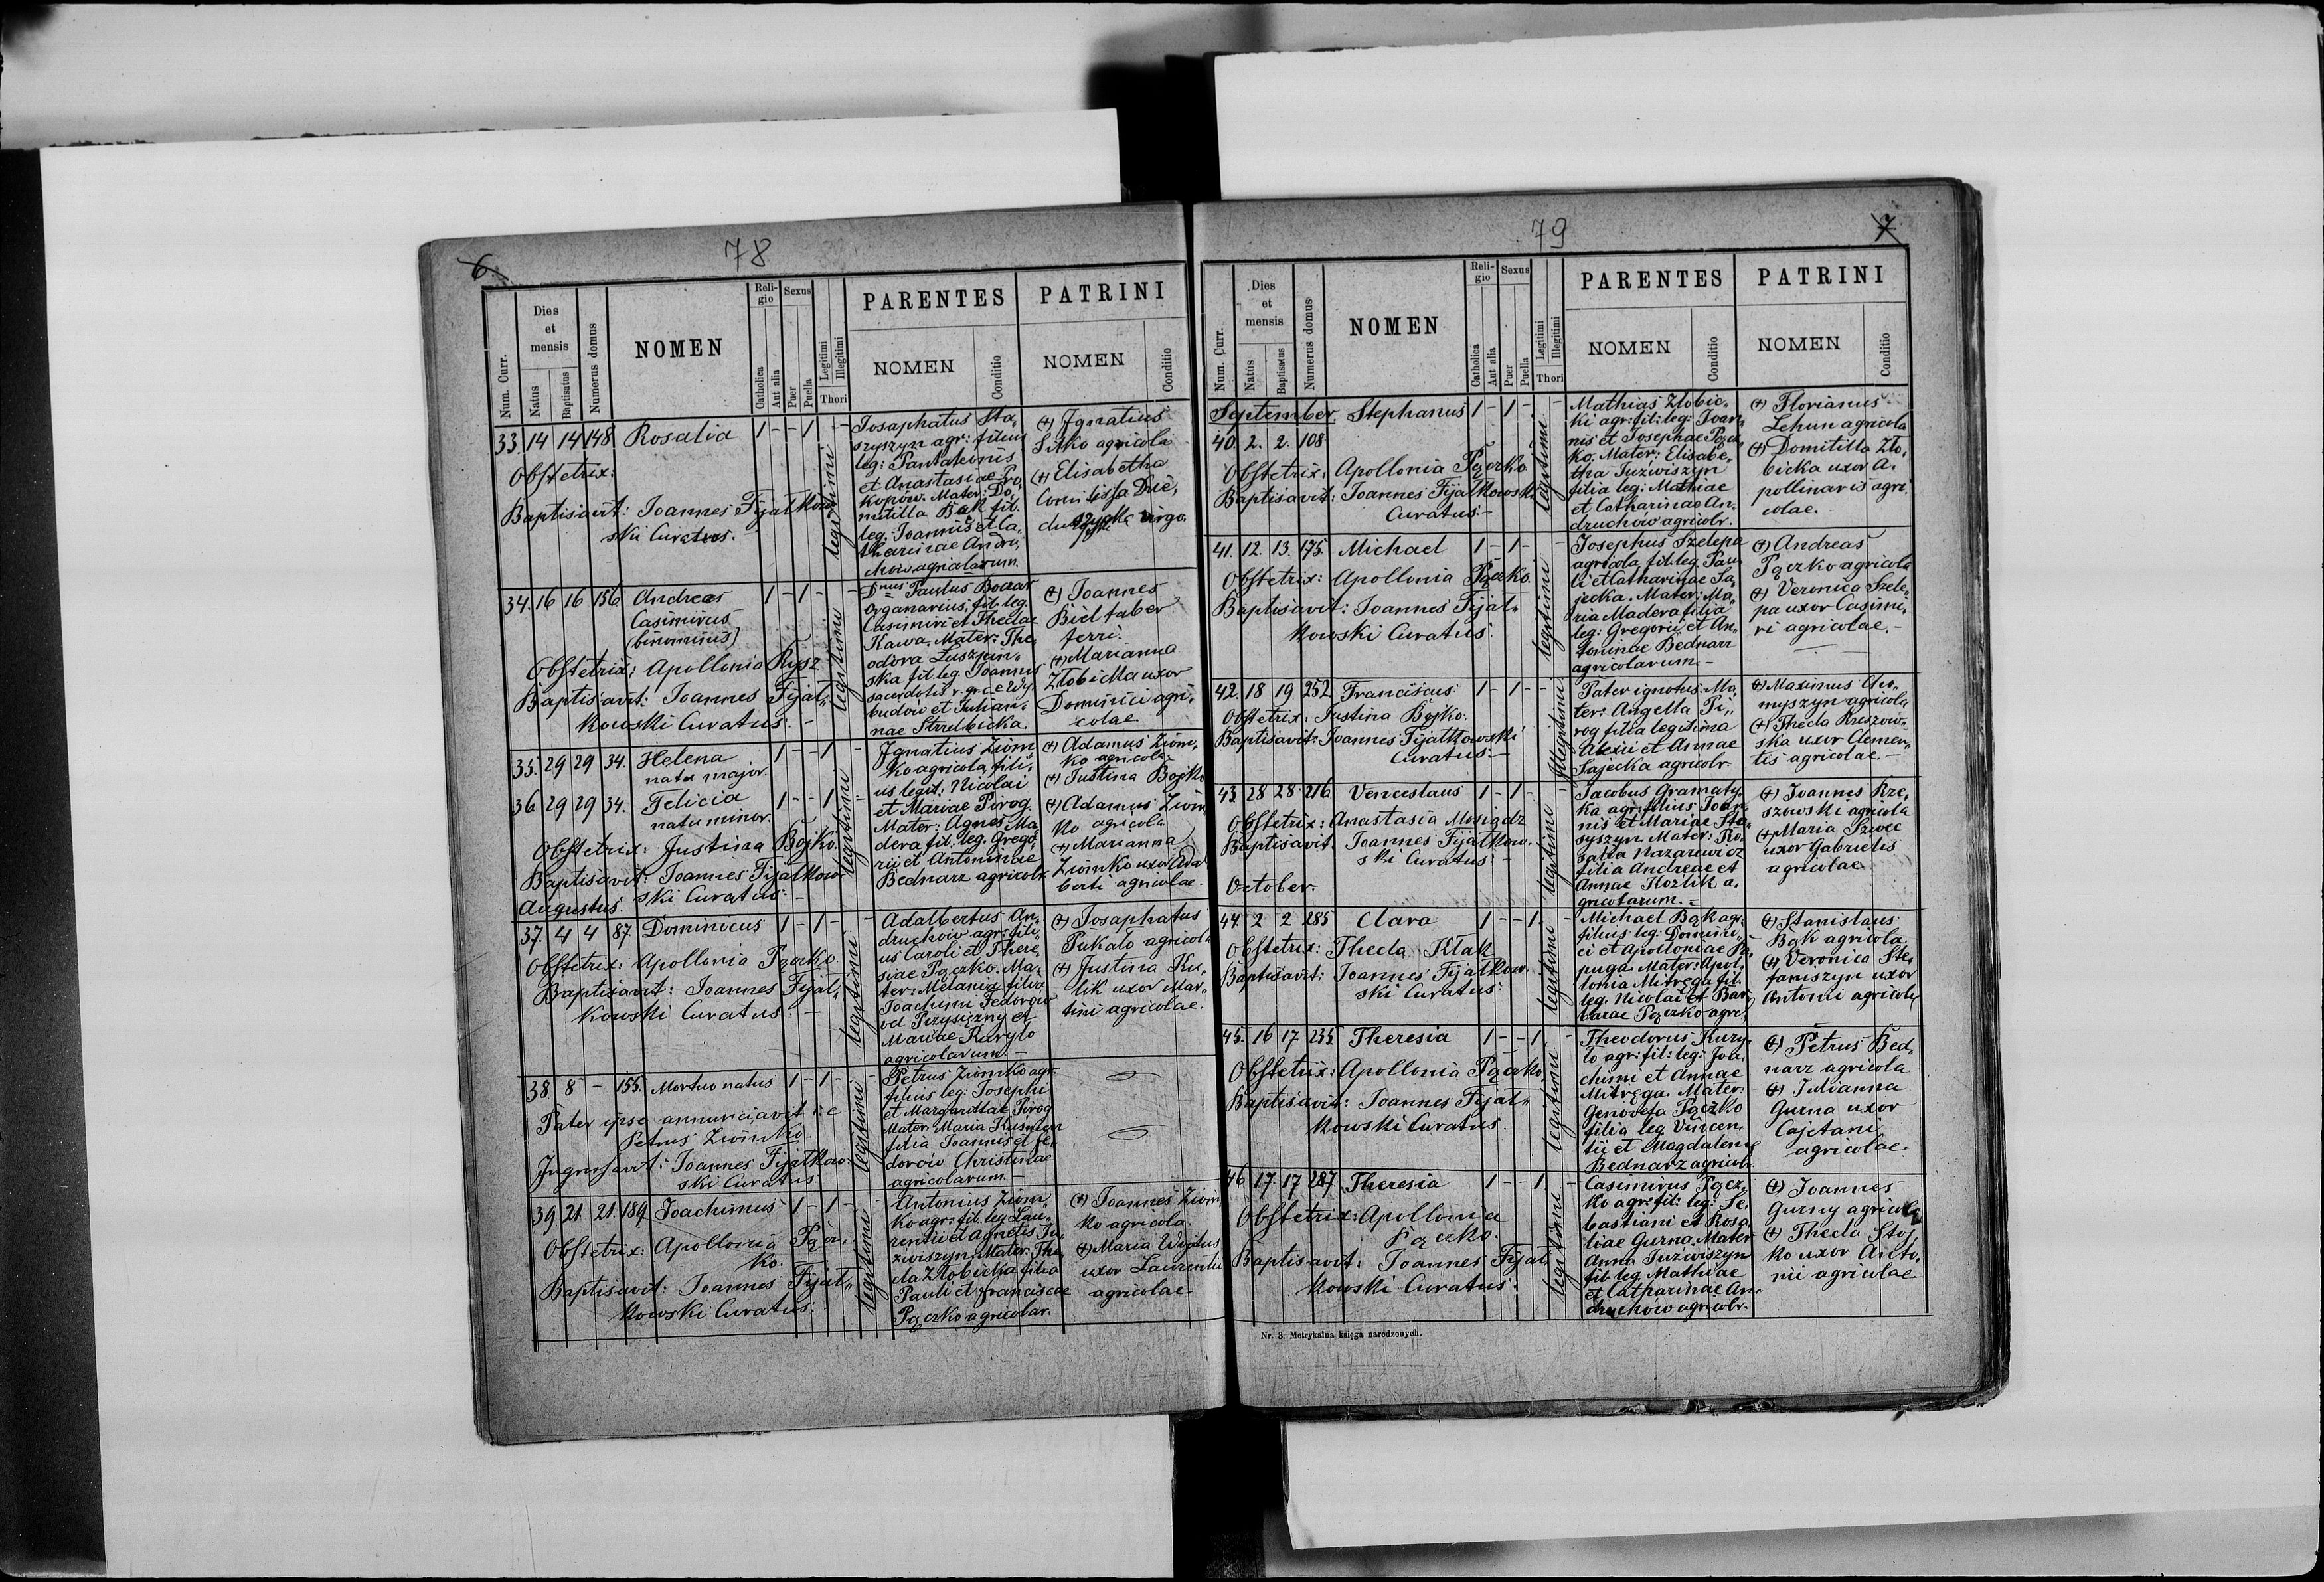 6.
78
Num. Curr.
Dies et mensis
Natus
Baptisatus
Numerus domus
NOMEN
Religio
Catholica
Aut alia
Sexus
Puer
Puella
Legitimi
Illegitimi
Thori
PARENTES
NOMEN
Conditio
PATRINI
NOMEN
Conditio
33. 14 14 148 Rosalia 1 - - 1 -
Obstetrix:
Baptisavit: Joannes Fijałkow
ski Curatus.
legitimi
Josaphatus Sta„
szyszyn agr: filius
leg: Pantaleonis
et Anastasiae Pro„
kopów. Mater: Do„
mitilla Bąk fil.
leg: Joannis et Ca„
tharinae Andru„
chów agricolarum.
(+) Ignatius
Sitko agricola
(+) Elisabetha
virgo.
34. 16 16 156 Andreas 1 - 1 - -
Casimirus
(binominus)
Obstetrix: Apollonia Rysz
Baptisavit: Joannes Fijał„
kowski Curatus. -
legitimi
Dnus Paulus Bodar
organarius, fil. leg.
Casimiri et Theclae
Kawa. Mater: The„
odora Łuszpin„
ska fil. leg. Joannis
sacerdotis r. gr. c. Wy„
budow et Julian„
nae Strubicka
(+) Joannes
Biel faber
ferri.
(+) Marianna
Złobicka uxor
Dominici agri„
colae
35. 29 29 34. Helena 1 - - 1 -
natu major.
36. 29 29 34. Felicia 1 - - 1 -
natu minor.
Obstetrix: Justina Bojko.
Baptisavit: Joannes Fijałkow
ski Curatus. -
legitimi
Ignatius Ziom„
ko agricola, fili„
us legit: Nicolai
et Mariae Pirog.
Mater: Agnes Ma„
dera fil. leg. Grego„
rii et Antoninae
Bednarz agricolr.
(+) Adamus Ziom„
ko agricola
(+) Justina Bojko
(+) Adamus Ziom„
ko agricola
(+) Marianna
Ziomko uxor Adal
berti agricolae.
Augustus.
37. 4 4 87. Dominicus 1 - 1 - -
Obstetrix: Apollonia Pączko.
Baptisavit: Joannes Fijał„
kowski Curatus. -
legitimi
Adalbertus An„
druchów agr: fili„
us Caroli et There„
siae Pączko. Ma„
ter: Melania filia
Joachimi Fedorow
od Przysiężny et
Mariae Kuryło
agricolarum. -
(+) Josaphatus
Pukało agricola
(+) Justina Ku„
lik uxor Mar„
tini agricolae.
38. 8 - 155. Mortuo natus 1 - 1 - -
Pater ipse annunciavit i. e
Petrus Ziomko
Ingrossavit: Joannes Fijałkow„
ski Curatus
legitimi
Petrus Ziomko agr:
filius leg: Josephi
et Margarithae Pirog
Mater: Maria
filia Joannis et Fe„
dorów Christinae
agricolarum. -
39. 21. 21. 189. Joachimus 1 - 1 - -
Obstetrix: Apollonia Pącz„
ko.
Baptisavit: Joannes Fijał„
kowski Curatus. -
legitimi
Antonius Ziom„
ko agr: fil. leg Lau„
rentii et Agnetis Ju„
zwiszyn. Mater: The„
cla Złobicka filia
Pauli et Franciscae
Pączko agricolar.
(+) Joannes Ziom„
ko agricola
(+) Maria
uxor Laurentii
agricolae
79
7
Num. Curr.
Dies et mensis
Natus
Baptisatus
Numerus domus
NOMEN
Religio
Catholica
Aut alia
Sexus
Puer
Puella
Legitimi
Illegitimi
Thori
PARENTES
NOMEN
Conditio
PATRINI
NOMEN
Conditio
September. Stephanus 1 - 1 - -
40. 2. 2. 108
Obstetrix: Apollonia Pączko
Baptisavit: Joannes Fijałkowski
Curatus. -
legitimi
Mathias Złobic„
ki agr: fil: leg: Joan„
nis et Josephae Pącz„
ko. Mater: Elisabe„
tha Juzwiszyn
filia leg: Mathiae
et Catharinae An„
druchów agricolr.
(+) Florianus
Lehun agricola
(+) Domitilla Zło„
bicka uxor A„
pollinaris agri„
colae.
41. 12. 13. 175. Michael 1 - 1 - -
Obstetrix: Apollonia Pączko.
Baptisavit: Joannes Fijał„
kowski Curatus.
legitimi
Josephus Szelepa
agricola, fil. leg. Pau„
li et Catharinae Sa„
jecka. Mater: Ma„
ria Madera filia
leg: Gregorii et An„
toninae Bednarz
agricolarum. -
(+) Andreas
Pączko agricola
(+) Veronica Szele„
pa uxor Casimi„
ri agricolae. -
42. 18 19 252 Franciscus 1 - 1 - -
Obstetrix: Justina Bojko.
Baptisavit: Joannes Fijałkowski
Curatus. -
Illegitimi
Pater ignotus. Ma„
ter: Angella Pi„
rog filia legitima
Alexii et Annae
Sajecka agricolr.
(+) Maximus
agricola
(+) Thecla Rzeszow„
ska uxor Clemen„
tis agricolae. -
43. 28 28 216. Venceslaus 1 - 1 -
Obstetrix: Anastasia Mosiądz
Baptisavit. Joannes Fijałkow„
ski Curatus. -
legitimi
Jacobus Gramaty„
ka agr: filius Joan„
nis et Mariae Sta„
syszyn. Mater: Ro„
salia Nazarewicz
filia Andreae et
Annae Kozlik a„
gricolarum. =
(+) Joannes Rze„
szowski agricola
(+) Maria Szwec
uxor Gabrielis
agricolae
October.
44. 2 2 285 Clara 1 - - 1 -
Obstetrix: Thecla Kłak
Baptisavit: Joannes Fijałkow„
ski Curatus.
legitimi
Michael Bąk agr:
filius leg: Domini„
ci et Apolloniae Pa„
puga. Mater: Apol„
lonia Mitręga fil.
leg. Nicolai et Bar„
barae Pączko agr.
(+) Stanislaus
Bąk agricola
(+) Veronica Ste„
faniszyn uxor
Antonii agricolae
45. 16 17 235 Theresia 1 - - 1 -
Obstetrix: Apollonia Pączko
Baptisavit: Joannes Fijał„
kowski Curatus.
legitimi
Theodorus Kury„
ło agr: fil: leg: Joa„
chimi et Annae
Mitręga. Mater:
Genovefa Pączko
filia leg Vincen„
tii et Magdalenae
Bednarz agricolr.
(+) Petrus Bed„
narz agricola
(+) Julianna
Gurna uxor
Cajetani
agricolae.
46 17 17 287 Theresia 1 - - 1 -
Obstetrix: Apollonia
Pączko.
Baptisavit: Joannes Fijał„
kowski Curatus.
legitimi
Casimirus Pącz„
ko agr: fil: leg: Se„
bastiani et Rosa„
liae Gurna. Mater
Anna Juzwiszyn
fil: leg Mathiae
et Catharinae An„
druchów agricolr.
(+) Joannes
Gurny agricola
(+) Thecla Stoj„
ko uxor Anto„
nii agricolae
Nr. 3. Metrykalna księga narodzonych.